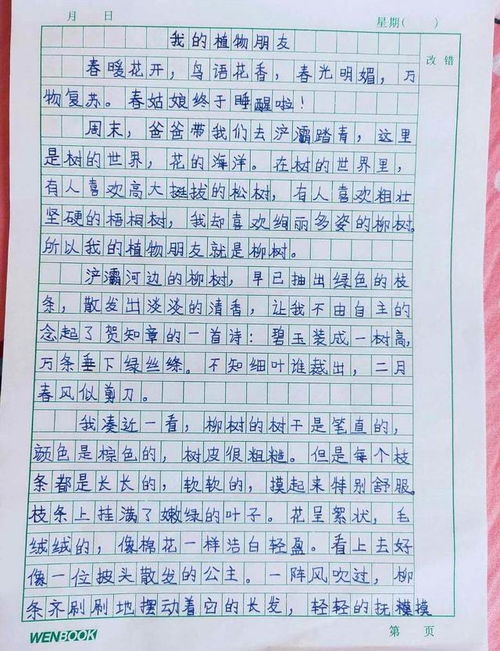 月 日 星期( )
我的植物朋友
改 错
春暖花开，鸟语花香，春光明媚，万
物复苏。春姑娘终于睡醒啦！
周末，爸爸带我们去浐灞踏青，这里
是树的世界，花的海洋。在树的世界里，
有人喜欢高大挺拔的松树，有人喜欢粗壮
坚硬的梧桐树，我却喜欢绚丽多姿的柳树。
所以我的植物朋友就是柳树。
浐灞河边的柳树，早已抽出绿色的枝
条，散发出淡淡的清香，让我不由自主的
念起了贺知章的一首诗：碧玉装成一树高，
万条垂下绿丝绦。不知细叶谁裁出，二月
春风似剪刀。
我凑近一看，柳树的树干是笔直的，
颜色是棕色的，树皮很粗糙。但是每个枝
条都是长长的，软软的，摸起来特别舒服。
枝条上挂满了嫩绿的叶子。花呈絮状，毛
绒绒的，像棉花一样洁白轻盈。看上去好
像一位披头散发的公主。一阵风吹过，柳
条齐刷刷地摆动着它的长发，轻轻的抚模摸
WENBOOK 第 页